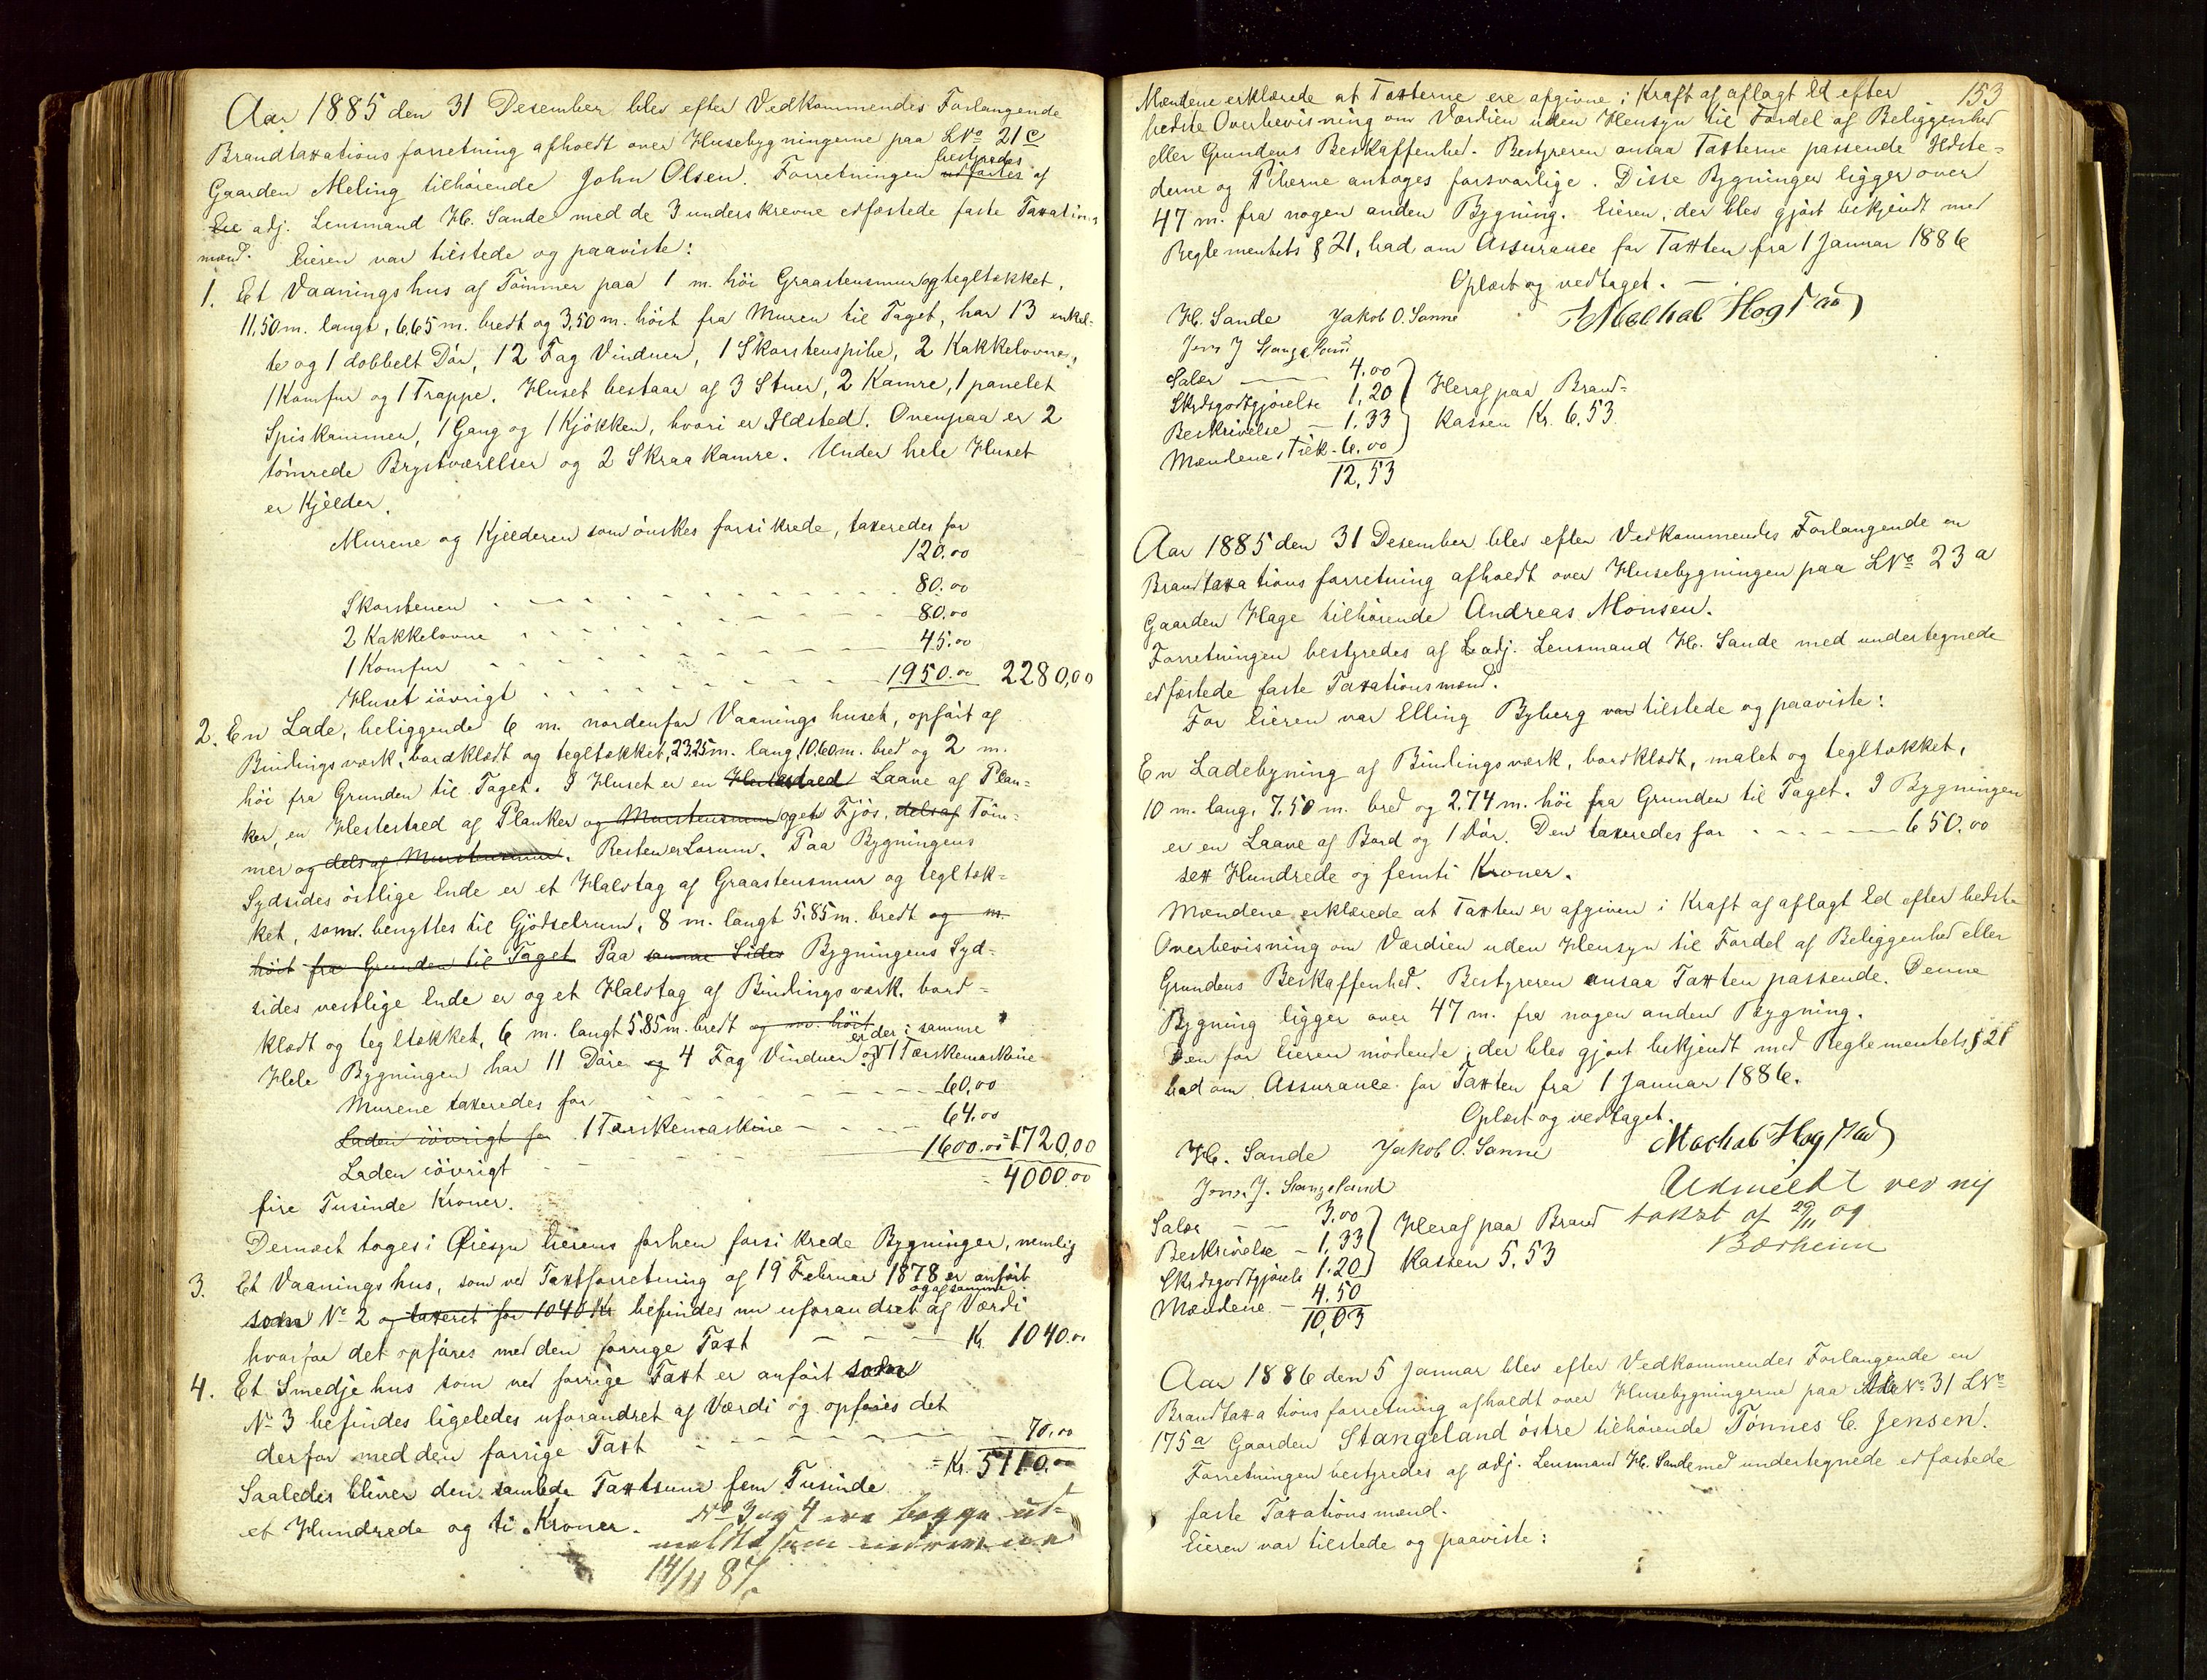 Aar 1885 den 31 Desember blev efter Vedkommendes Forlangende
Brandtaxationsforretning afholdt over Husebygningerne paa LNo 21c
Gaarden Meling tilhørende John Olsen. Forretningen udførtes bestyredes af
adj. Lensmand H. Sande med de 3 underskrevne edfæstede faste Taxations
mænd. Eieren var tilstede og paaviste:
1. Et Vaaningshus af Tømmer paa 1 m. høi Graastensmur og tegltækket,
11,50 m. langt, 6,65 m. bredt og 3,50 m. høit fra Muren til Taget, har 13 enkel-
te og 1 dobbelt Dør, 12 Fag Vinduer, 1 Skorstenspibe, 2 Kakkelovne,
1 Komfur og 1 Trappe. Huset bestaar af 3 Stuer, 2 Kamre, 1 panelet
Spiskammer, 1 Gang og 1 Kjøkken, hvori er Ildsted. Ovenpaa er 2
tømrede Brystværelser og 2 Skraakamre. Under hele Huset
er Kjelder.
Murene og Kjelderen som ønskes forsikrede, taxeredes for
120.00
Skorstenen 80.00
2 Kakkelovne 80.00
1 Komfur 45.00
Huset iøvrigt 1950.00 2280,00
2. En Lade, beliggende 6 m. nordenfor Vaaningshuset, opført af
Bindingsværk, bordklædt og tegltækket, 23,25 m. lang, 10,60 m. bred og 2 m.
høi fra Grunden til Taget. I Huset er en Hestestald Laave af Plan-
ker, en Hestestald af Planker og Murstensmur og et Fjøs, dels af Tøm-
mer og dels af Murstensmur. Resten er Lorum. Paa Bygningens
Sydsides østlige Ende er et Halvtag af Graastensmur og tegltæk-
ket, som benyttes til Gjødselrum, 8 m. langt 5,85 m. bredt og m.
høit fra Grunden til Taget Paa samme Sides Bygningens Syd-
sides vestlige Ende er og et Halvtag af Bindingsværk, bord-
klædt og tegltækket, 6 m. langt 5.85 m. bredt og m. høit
er der i samme
Hele Bygningen har 11 Døre og 4 Fag Vinduer og 1 Tærskemaskine
Murene taxeredes for 60,00
Laden iøvrigt for 1 Tærskemaskine 64.00
Laden iøvrigt 1600.00 = 1720,00
fire Tusinde Kroner. = 4000.00
Dernæst toges i Øiesyn Eierens forhen forsikrede Bygninger, nemlig
3. Et Vaaningshus, som ved Taxtforretning af 19 Februar 1878 er anført
og af samme
som No 2 og taxeret for 1040 Kr befindes nu uforandret af Værdi
hvorfor det opføres med den forrige Taxt Kr. 1040.00
4. Et Smedjehus som ved forrige Taxt er anført som
No 3 befindes ligeledes uforandret af Værdi og opføres det
derfor med den forrige Taxt 70.00
Saaledes bliver den samlede Taxtsum fem Tusinde = Kr. 5110.00
et Hundrede og ti Kroner. No 3 og 4 ere begge ud-
meldte som
14/11 87.
153
Mændene erklærede at Taxterne ere afgivne i Kraft af aflagt Ed efter
bedste Overbevisning om Værdien uden Hensyn til Fordel af Beliggenhed
eller Grundens Beskaffenhed. Bestyreren ansaa Taxterne passende Ildste-
derne og Piberne antoges forsvarlige. Disse Bygninger ligger over
47 m. fra nogen anden Bygning. Eieren, der blev gjort bekjendt med
Reglementets § 21, bad om Assurance for Taxten fra 1 Januar 1886
Oplæst og vedtaget.
H. Sande Jakob O. Sanne
Jens J Stangeland
Salær 4.00
Skydsgodtgjørelse 1,20 Heraf paa Brand-
Beskrivelse 1.33 kassen Kr. 6,53
Mændenes Tilk. 6.00
12,53
Aar 1885 den 31 Desember blev efter Vedkommendes Forlangende en
Brandtaxationsforretning afholdt over Husebygningen paa LNo 23 a
Gaarden Hage tilhørende Andreas Monsen.
Forretningen bestyredes af adj. Lensmand H. Sande med undertegnede
edfæstede faste Taxationsmænd.
For Eieren var Elling Byberg var tilstede og paaviste:
En Ladebygning af Bindingsværk, bordklædt, malet og tegltækket,
10 m. lang, 7,50 m. bred og 2,74 m. høi fra Grunden til Taget. I Bygningen
er en Laave af Bord og 1 Dør. Den taxeredes for 650.00
sex Hundrede og femti Kroner.
Mændene erklærede at Taxten er afgiven i Kraft af aflagt Ed efter bedste
Overbevisning om Værdien uden Hensyn til Fordel af Beliggenhed eller
Grundens Beskaffenhed. Bestyreren ansaa Taxten passende. Denne
Bygning ligger over 47 m. fra nogen anden Bygning.
Den for Eieren mødende, der blev gjort bekjendt med Reglementets § 21
bad om Assurance for Taxten fra 1 Januar 1886.
Oplæst og vedtaget.
H. Sande Jakob O. Sanne
Jens J. Stangeland
Udmeldt ved ny
Salær 3.00 Heraf paa Brand takst af 29/11 09
Beskrivelse 1,33 kassen 5,53 Bærheim
Skydsgodtgjørelse 1.20
Mændene 4.50
10,03
Aar 1886 den 5 Januar blev efter Vedkommendes Forlangende en
Brandtaxationsforretning afholdt over Husebygningerne paa No 31 LNo
175a Gaarden Stangeland østre tilhørende Tønnes C. Jensen.
Forretningen bestyredes af adj. Lensmand H. Sande med undertegnede edfæstede
faste Taxationsmænd.
Eieren var tilstede og paaviste: